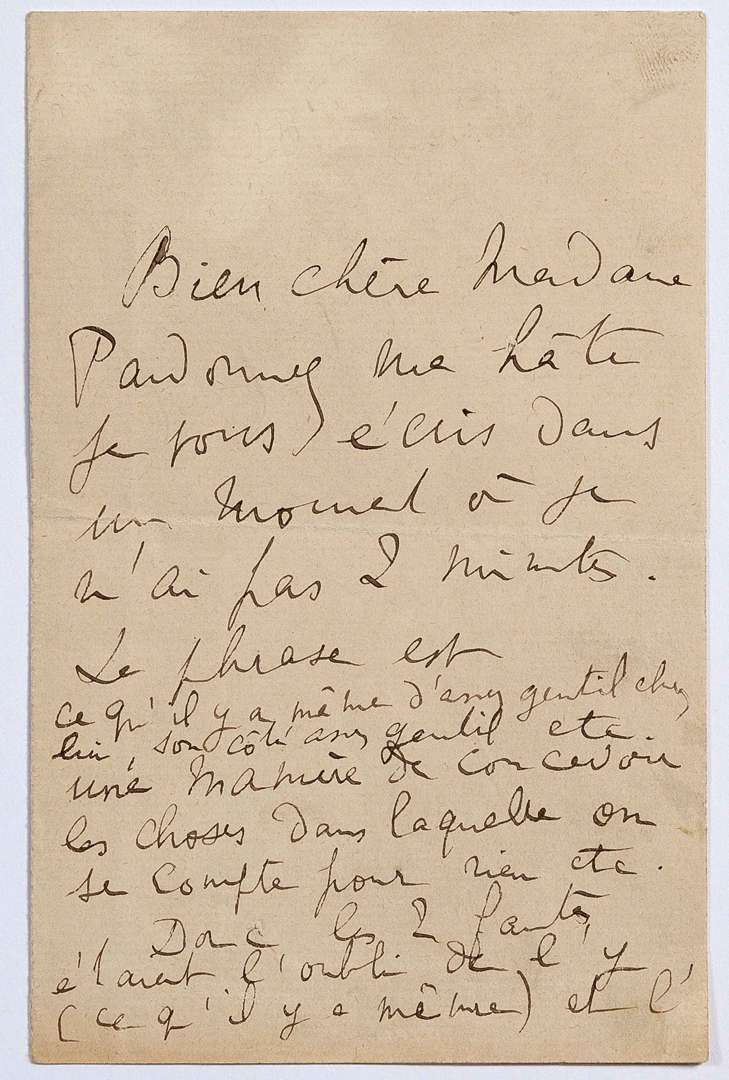 Bien chère Madame
Pardonnez ma hâte
je vous écris dans
un moment où je
n'ai pas 2 minutes.
La phrase est
ce qu'il y a même d'assez gentil chez
lui, son côté assez gentil etc.
une manière de concevoir
les choses dans laquelle on
se compte pour rien etc.
Donc les 2 fautes
étaient l'oubli de l'y
(ce qu'il y a même) et l'